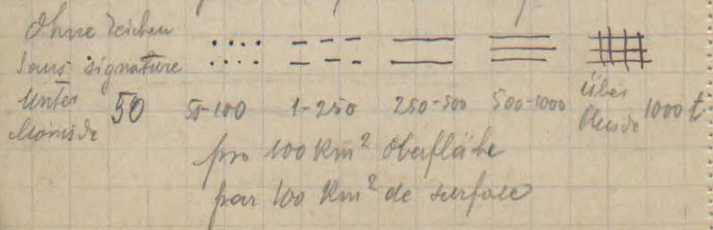 Ohne Zeichen
Sans signature
Unter
Moins de 50 50-100 1-250 250-500 500-1000 über
Plus de 1000 t
pro 100 Km² Oberfläche
par 100 Km² de surface